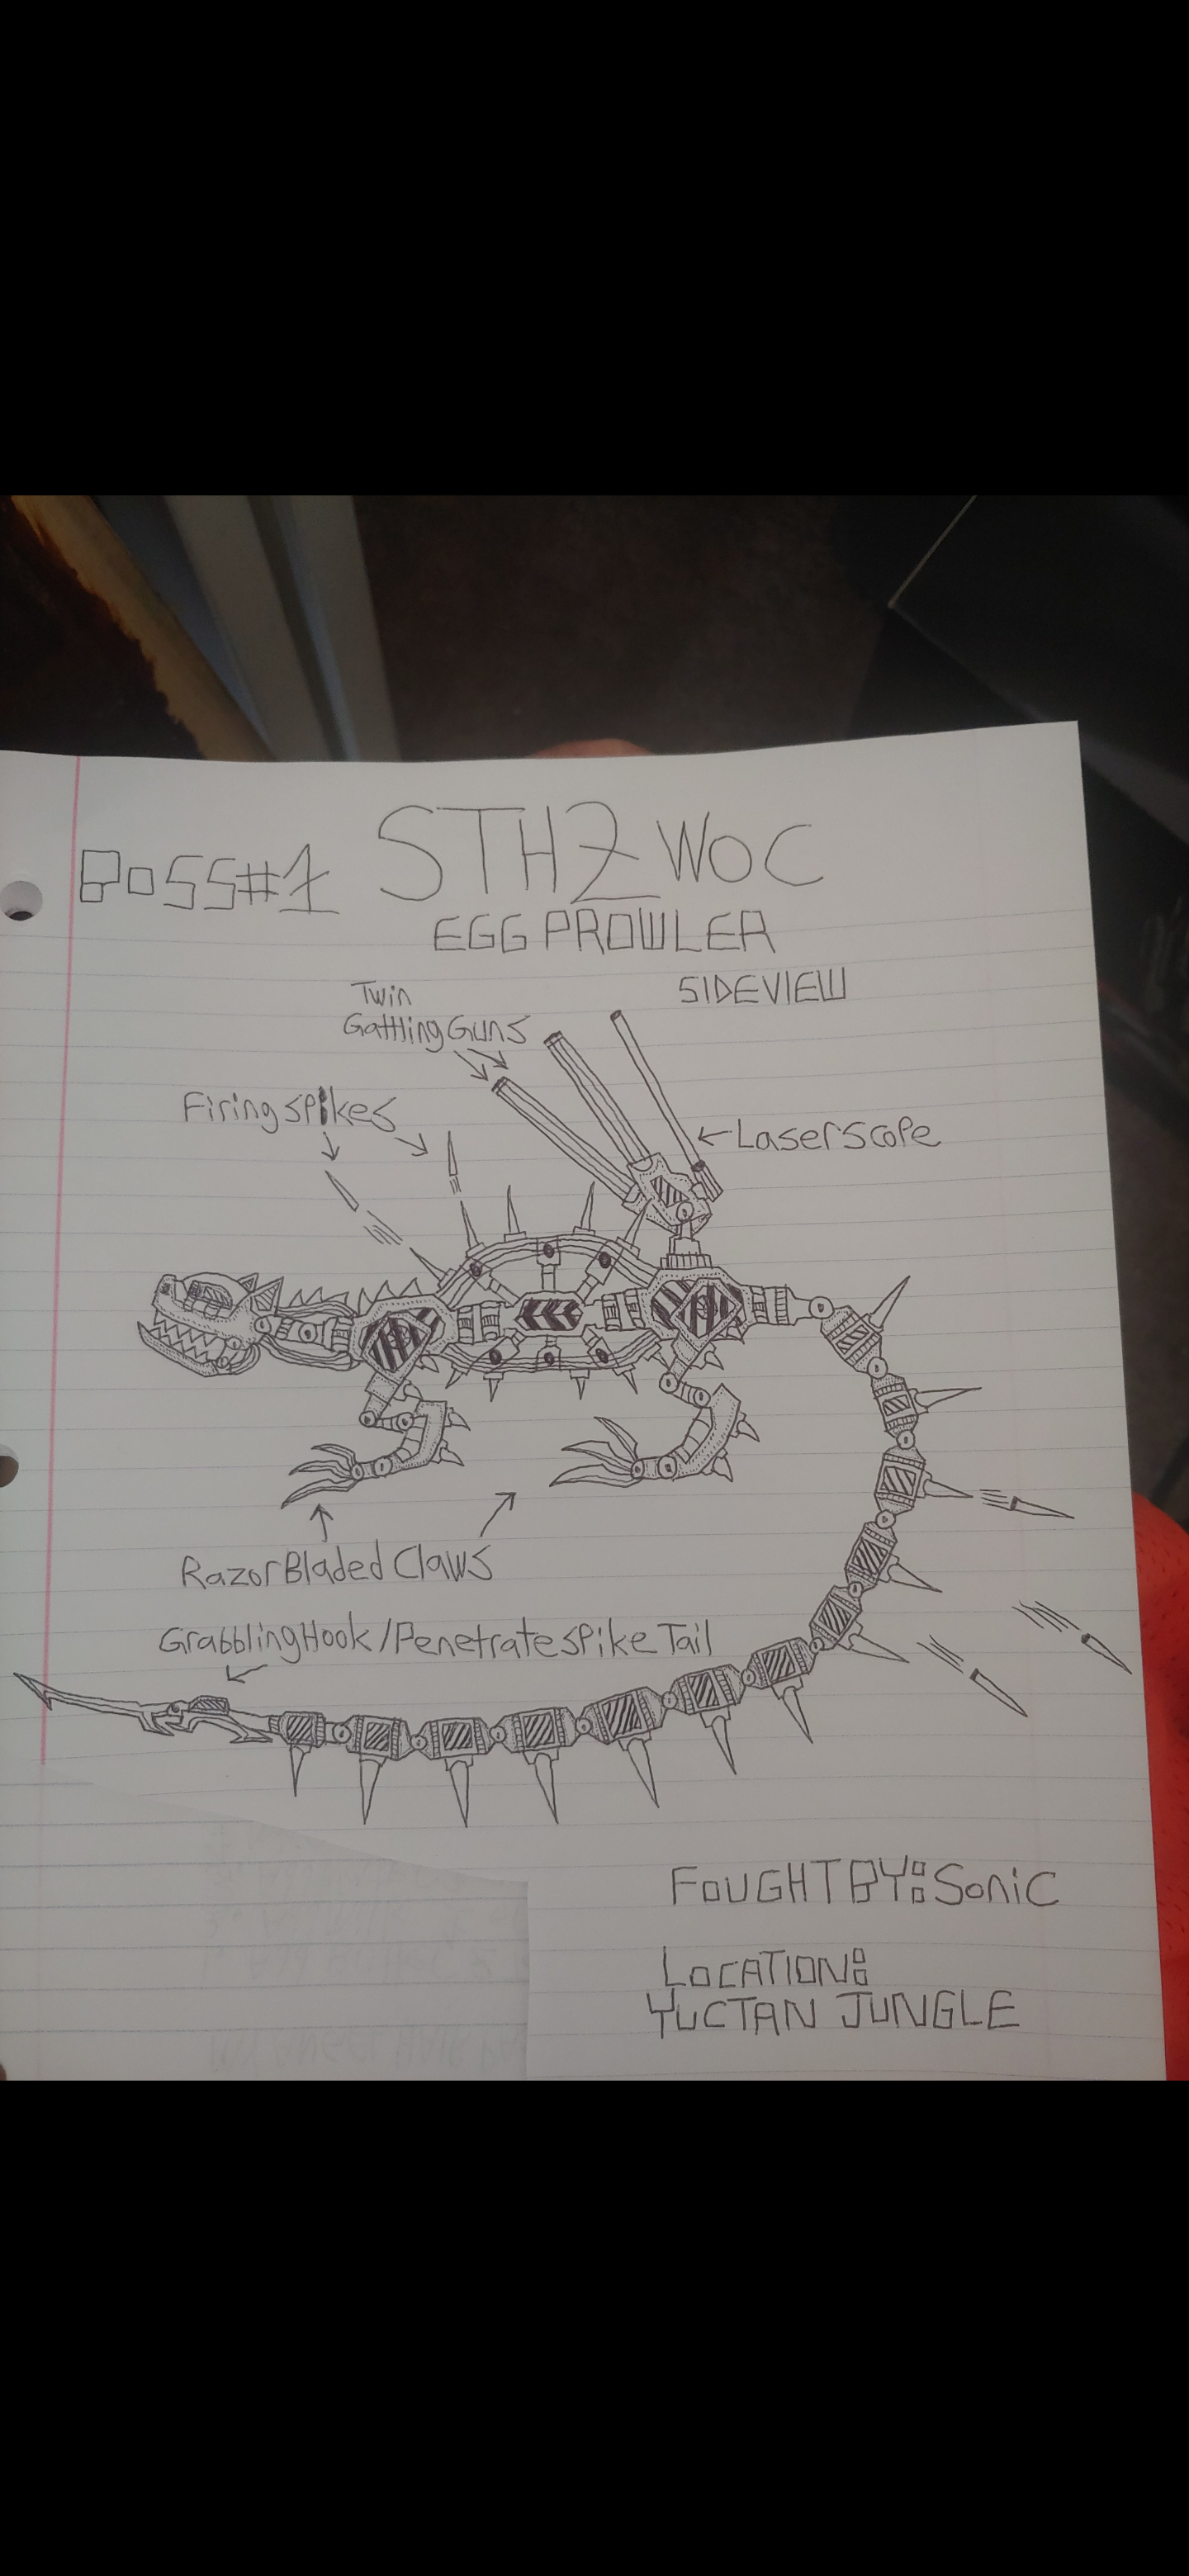 STH2 WOC
BOSS#1
EGG PROWLER
SIDEVIEW
Twin
Gattling Guns
Firing spikes
Laser Scope
Razor Bladed Claws
Grabbling Hook / Penetrate spike Tail
FOUGHT BY: Sonic
LOCATION:
YUCTAN JUNGLE